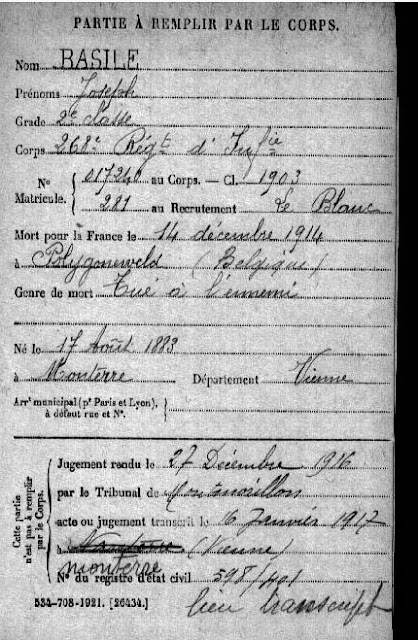 PARTIE À REMPLIR PAR LE CORPS.
Nom BASILE
Prénoms Joseph
Grade 2e Classe
Corps 268e Régt d'Infie
No 017240 au Corps. — Cl. 1903
Matricule. 281 au Recrutement Le Blanc
Mort pour la France le 14 décembre 1914
à Polygoneveld (Belgique)
Genre de mort Tué à l'ennemi
Né le 17 Août 1883
à Mouterre Département Vienne
Arrt municipal (pr Paris et Lyon), à défaut rue et No.
Cette partie n'est pas à remplir par le Corps.
Jugement rendu le 27 Décembre 1916
par le Tribunal de Montmorillon
acte ou jugement transcrit le 16 Janvier 1917
à (Vienne)
Mouterre
No du registre d'état civil 598/401
534-708-1921. [26434.] lieu transcript